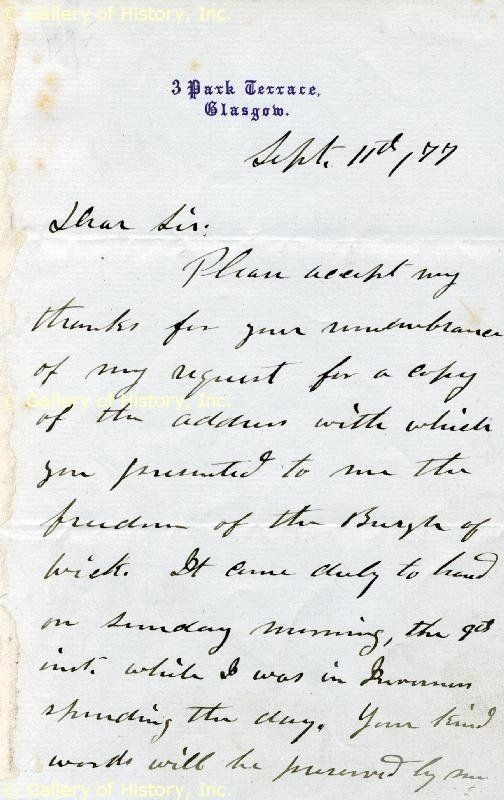 © Gallery of History, Inc.
3 Park Terrace,
Glasgow.
Sept. 11th, 77
Dear Sir:
Please accept my
thanks for your remembrance
of my request for a copy
© Gallery of History, Inc.
of the address with which
you presented to me the
freedom of the Burgh of
Wick. It came duly to hand
on Sunday morning, the 9th
inst. while I was in Inverness
spending the day. Your kind
words will be preserved by me
© Gallery of History, Inc.